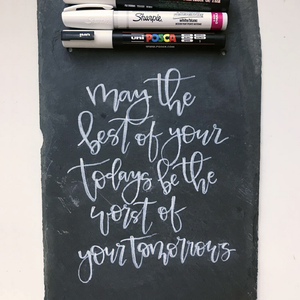 Sharpie
uni POSCA
may the
best of your
todays be the
worst of
your tomorrows